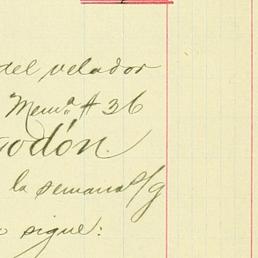 del velador
Mem.ª # 36
odón.
la semana s/g
sigue: